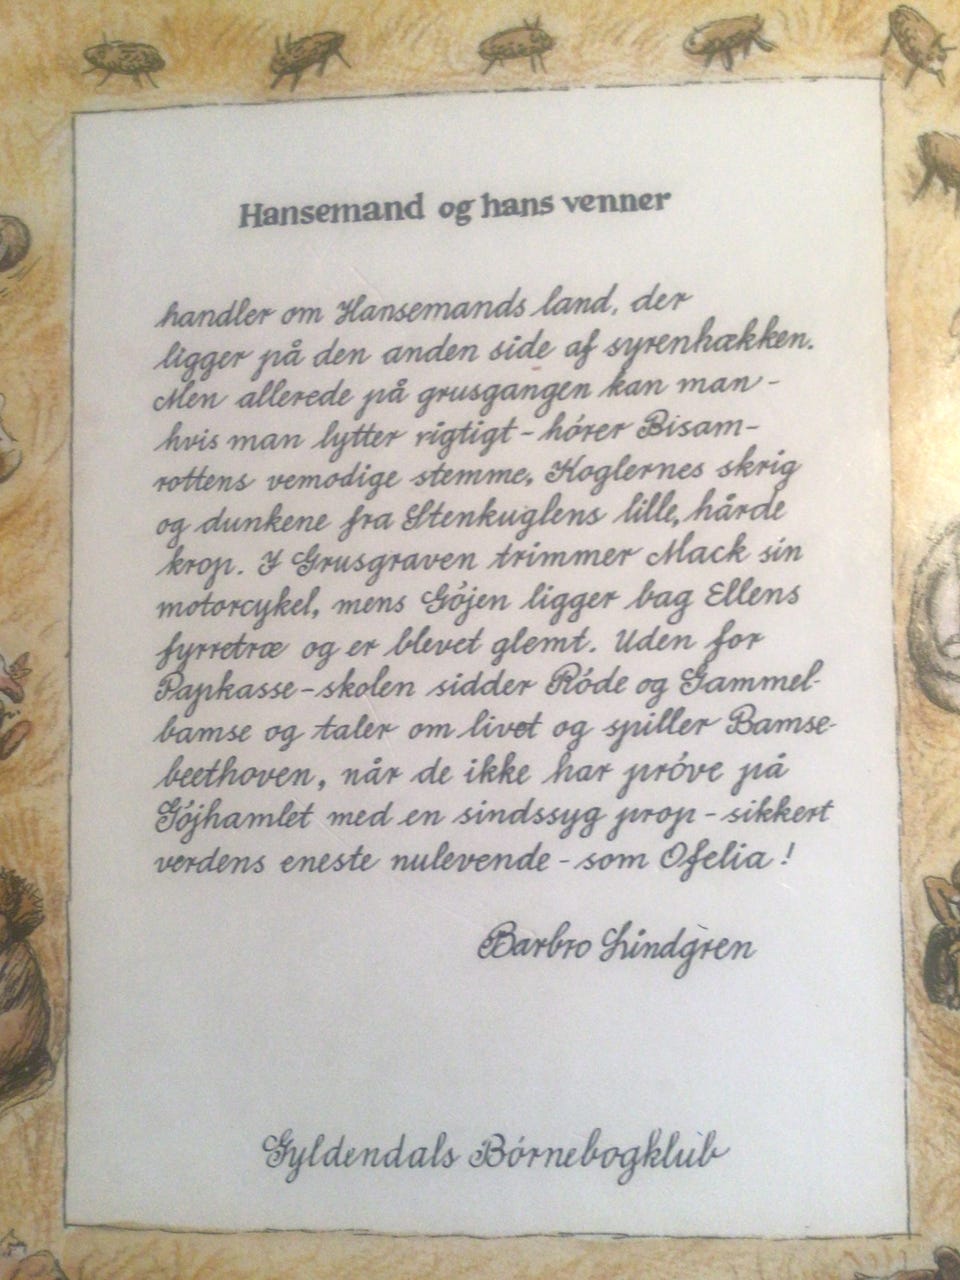 Hansemand og hans venner
handler om Hansemands land, der
ligger på den anden side af syrenhækken.
Men allerede på grusgangen kan man -
hvis man lytter rigtigt - hører Bisam-
rottens vemodige stemme, Koglernes skrig
og dunkene fra Stenkuglens lille, hårde
krop. I Grusgraven trimmer Mack sin
motorcykel, mens Gójen ligger bag Ellens
fyrretræ og er blevet glemt. Uden for
Papkasse-skolen sidder Róde og Gammel-
bamse og taler om livet og spiller Bamse-
beethoven, når de ikke har próve på
Gójhamlet med en sindssyg prop - sikkert
verdens eneste nulevende - som Ofelia!
Barbro Lindgren
Gyldendals Bórnebogklub